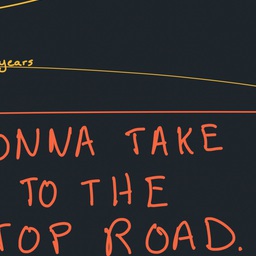 years
ONNA TAKE
TO THE
TOP ROAD.